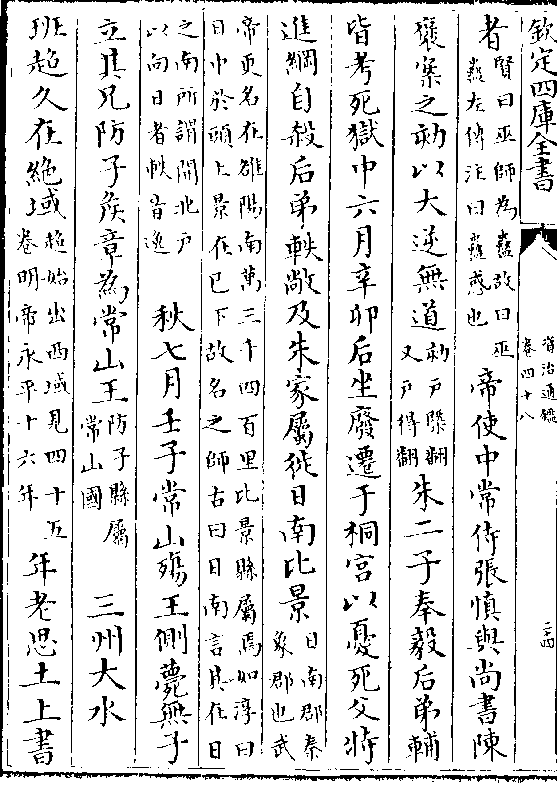 欽定四庫全書
資治通鑑
卷四十八
二四
者賢曰巫師為蠱故曰巫蠱左傳注曰蠱惑也帝使中常侍張慎與尚書陳
襃案之劾以大逆無道劾戶槩翻又戶得翻朱二子奉毅后弟輔
皆考死獄中六月辛卯后坐廢遷于桐宮以憂死父特
進綱自殺后弟軼敞及朱家屬徙日南比景日南郡秦象郡也武
帝更名在雒陽南萬三千四百里比景縣屬焉如淳曰日中於頭上景在已下故名之師古曰日南言其在日
之南所謂開北戶以向日者軼音逸秋七月壬子常山殤王側薨無子
立其兄防子侯章為常山王防子縣屬常山國三州大水
班超久在絶域超始出西域見四十五卷明帝永平十六年年老思土上書